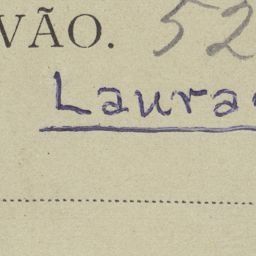 VÃO. 52
Laura